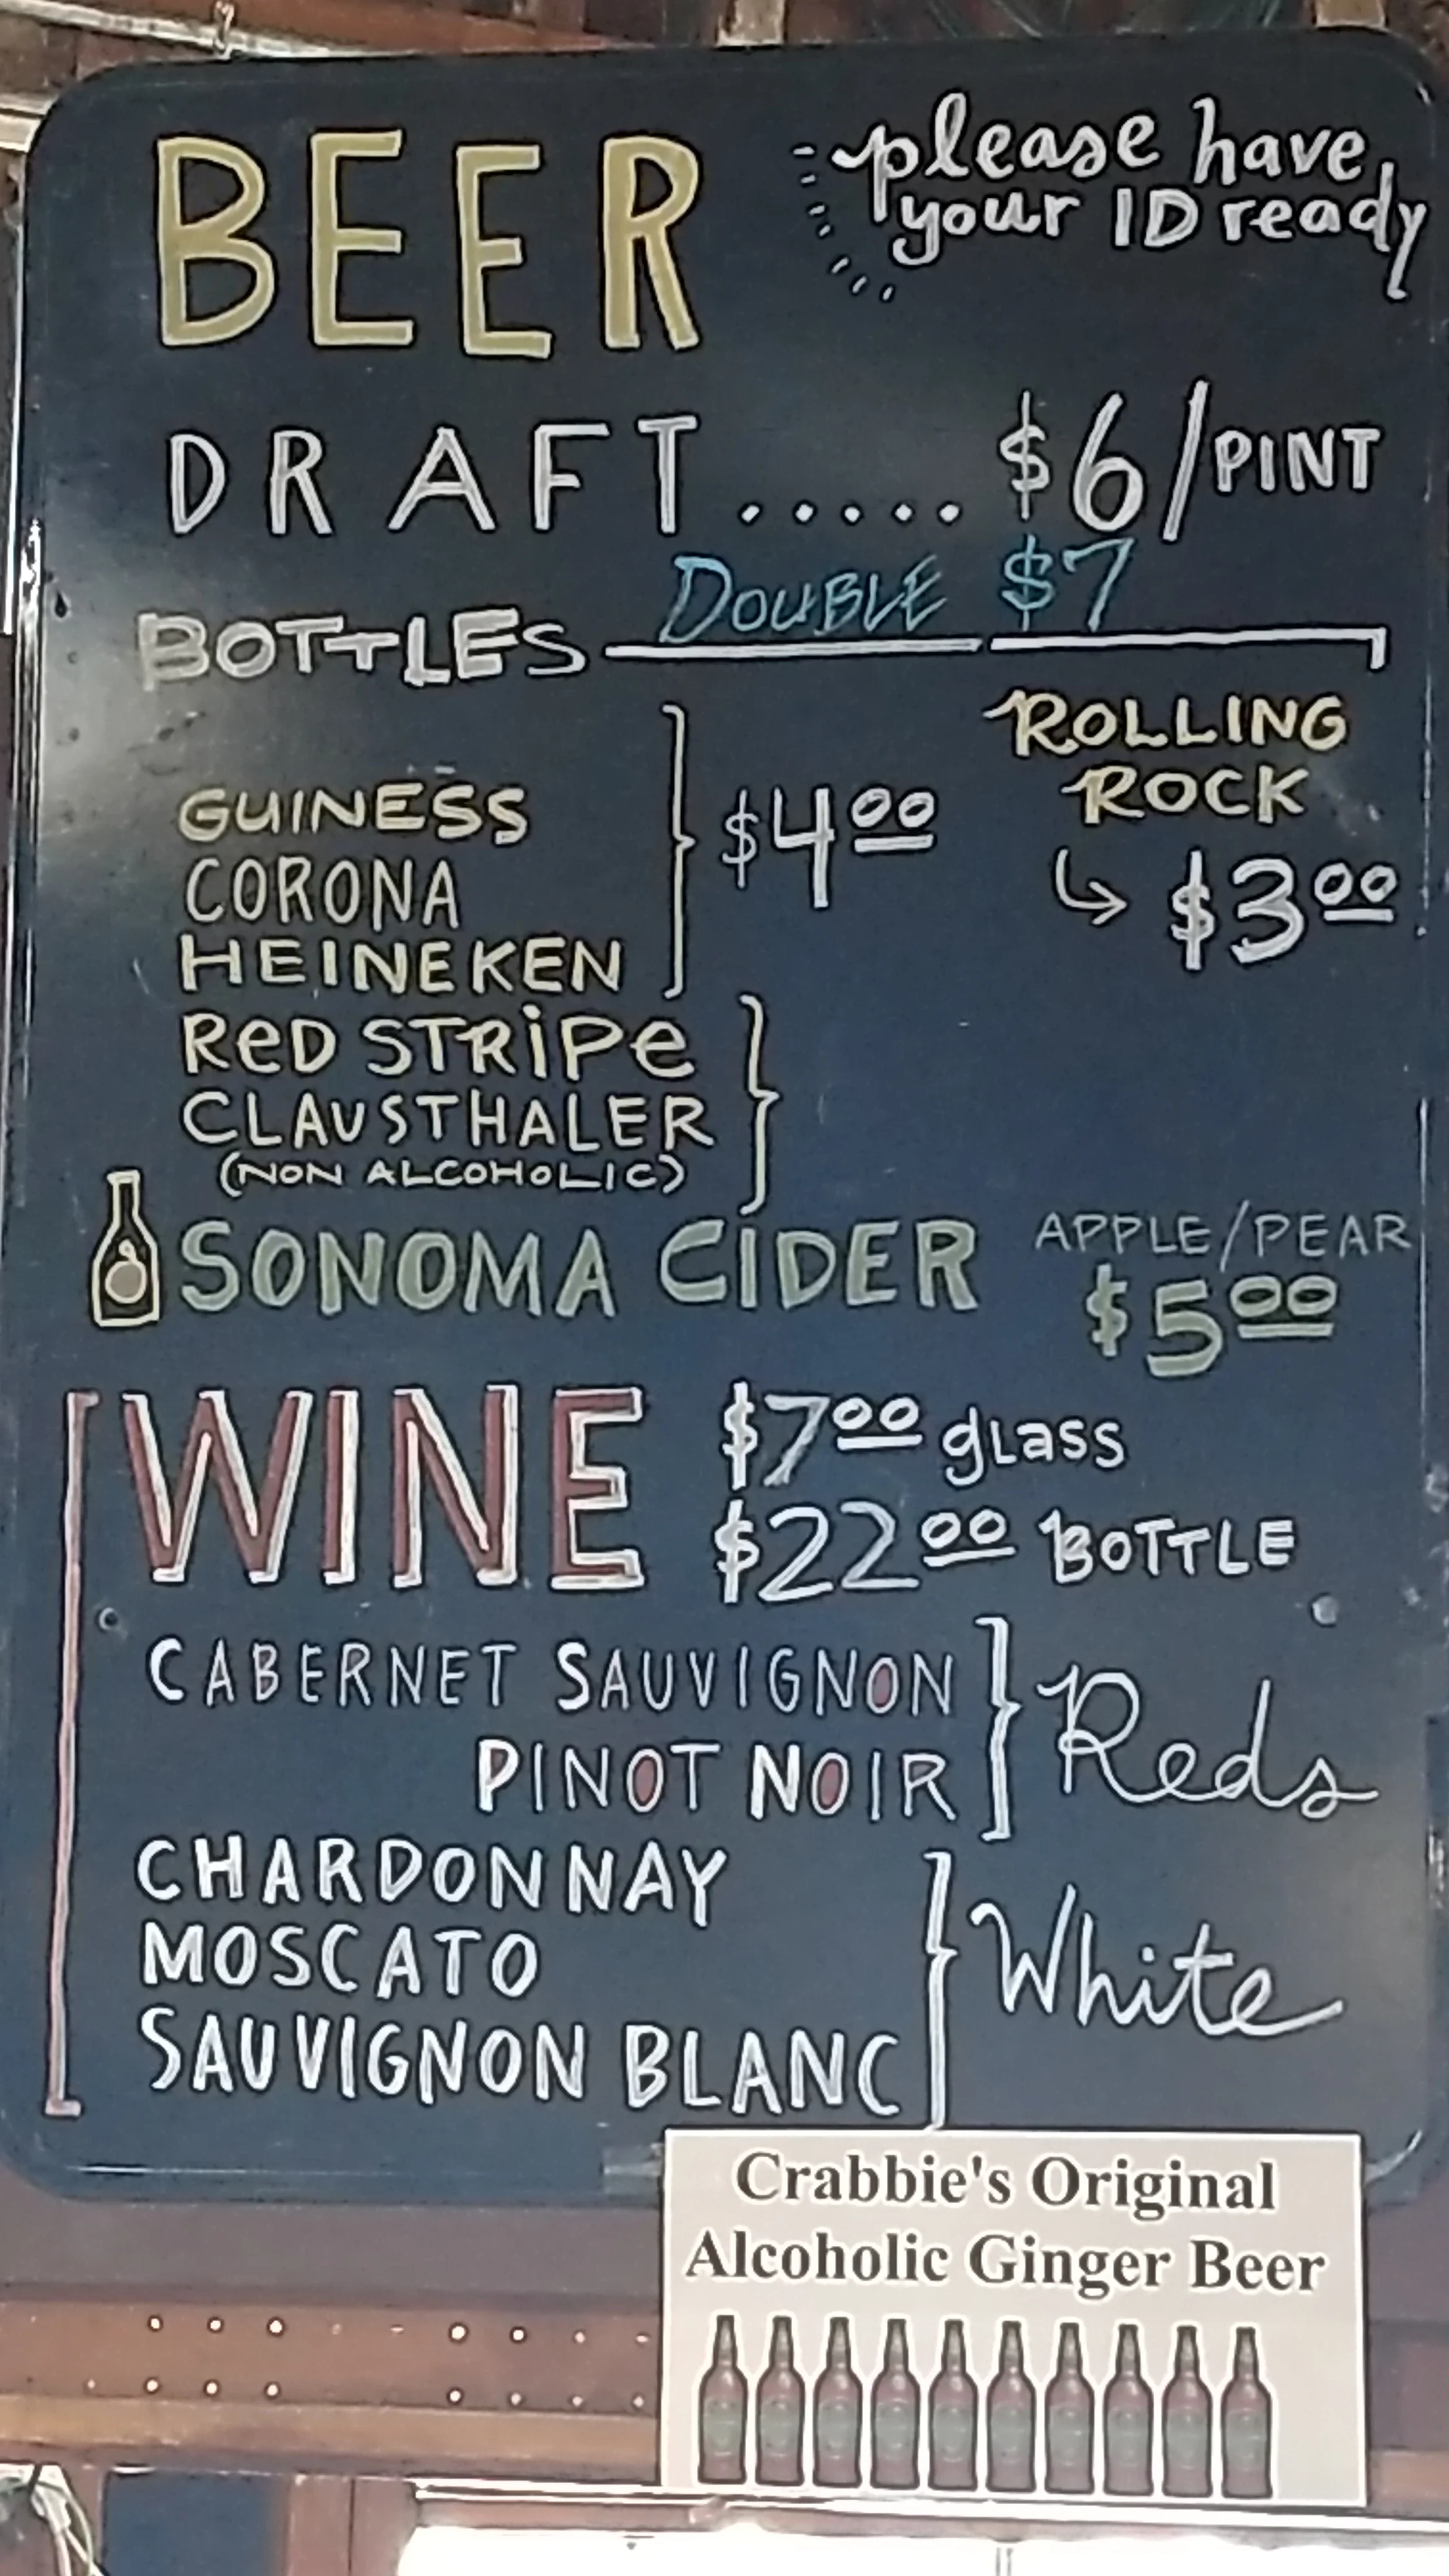 BEER
please have
your ID ready
DRAFT..... $6/PINT
DOUBLE $7
BOTTLES
GUINESS
CORONA
HEINEKEN
$4.00
ROLLING
ROCK
$3.00
RED STRIPE
CLAUSTHALER
(NON ALCOHOLIC)
SONOMA CIDER APPLE/PEAR
$5.00
WINE $7.00 glass
$22.00 BOTTLE
CABERNET SAUVIGNON
PINOT NOIR
Reds
CHARDONNAY
MOSCATO
SAUVIGNON BLANC
White
Crabbie's Original
Alcoholic Ginger Beer